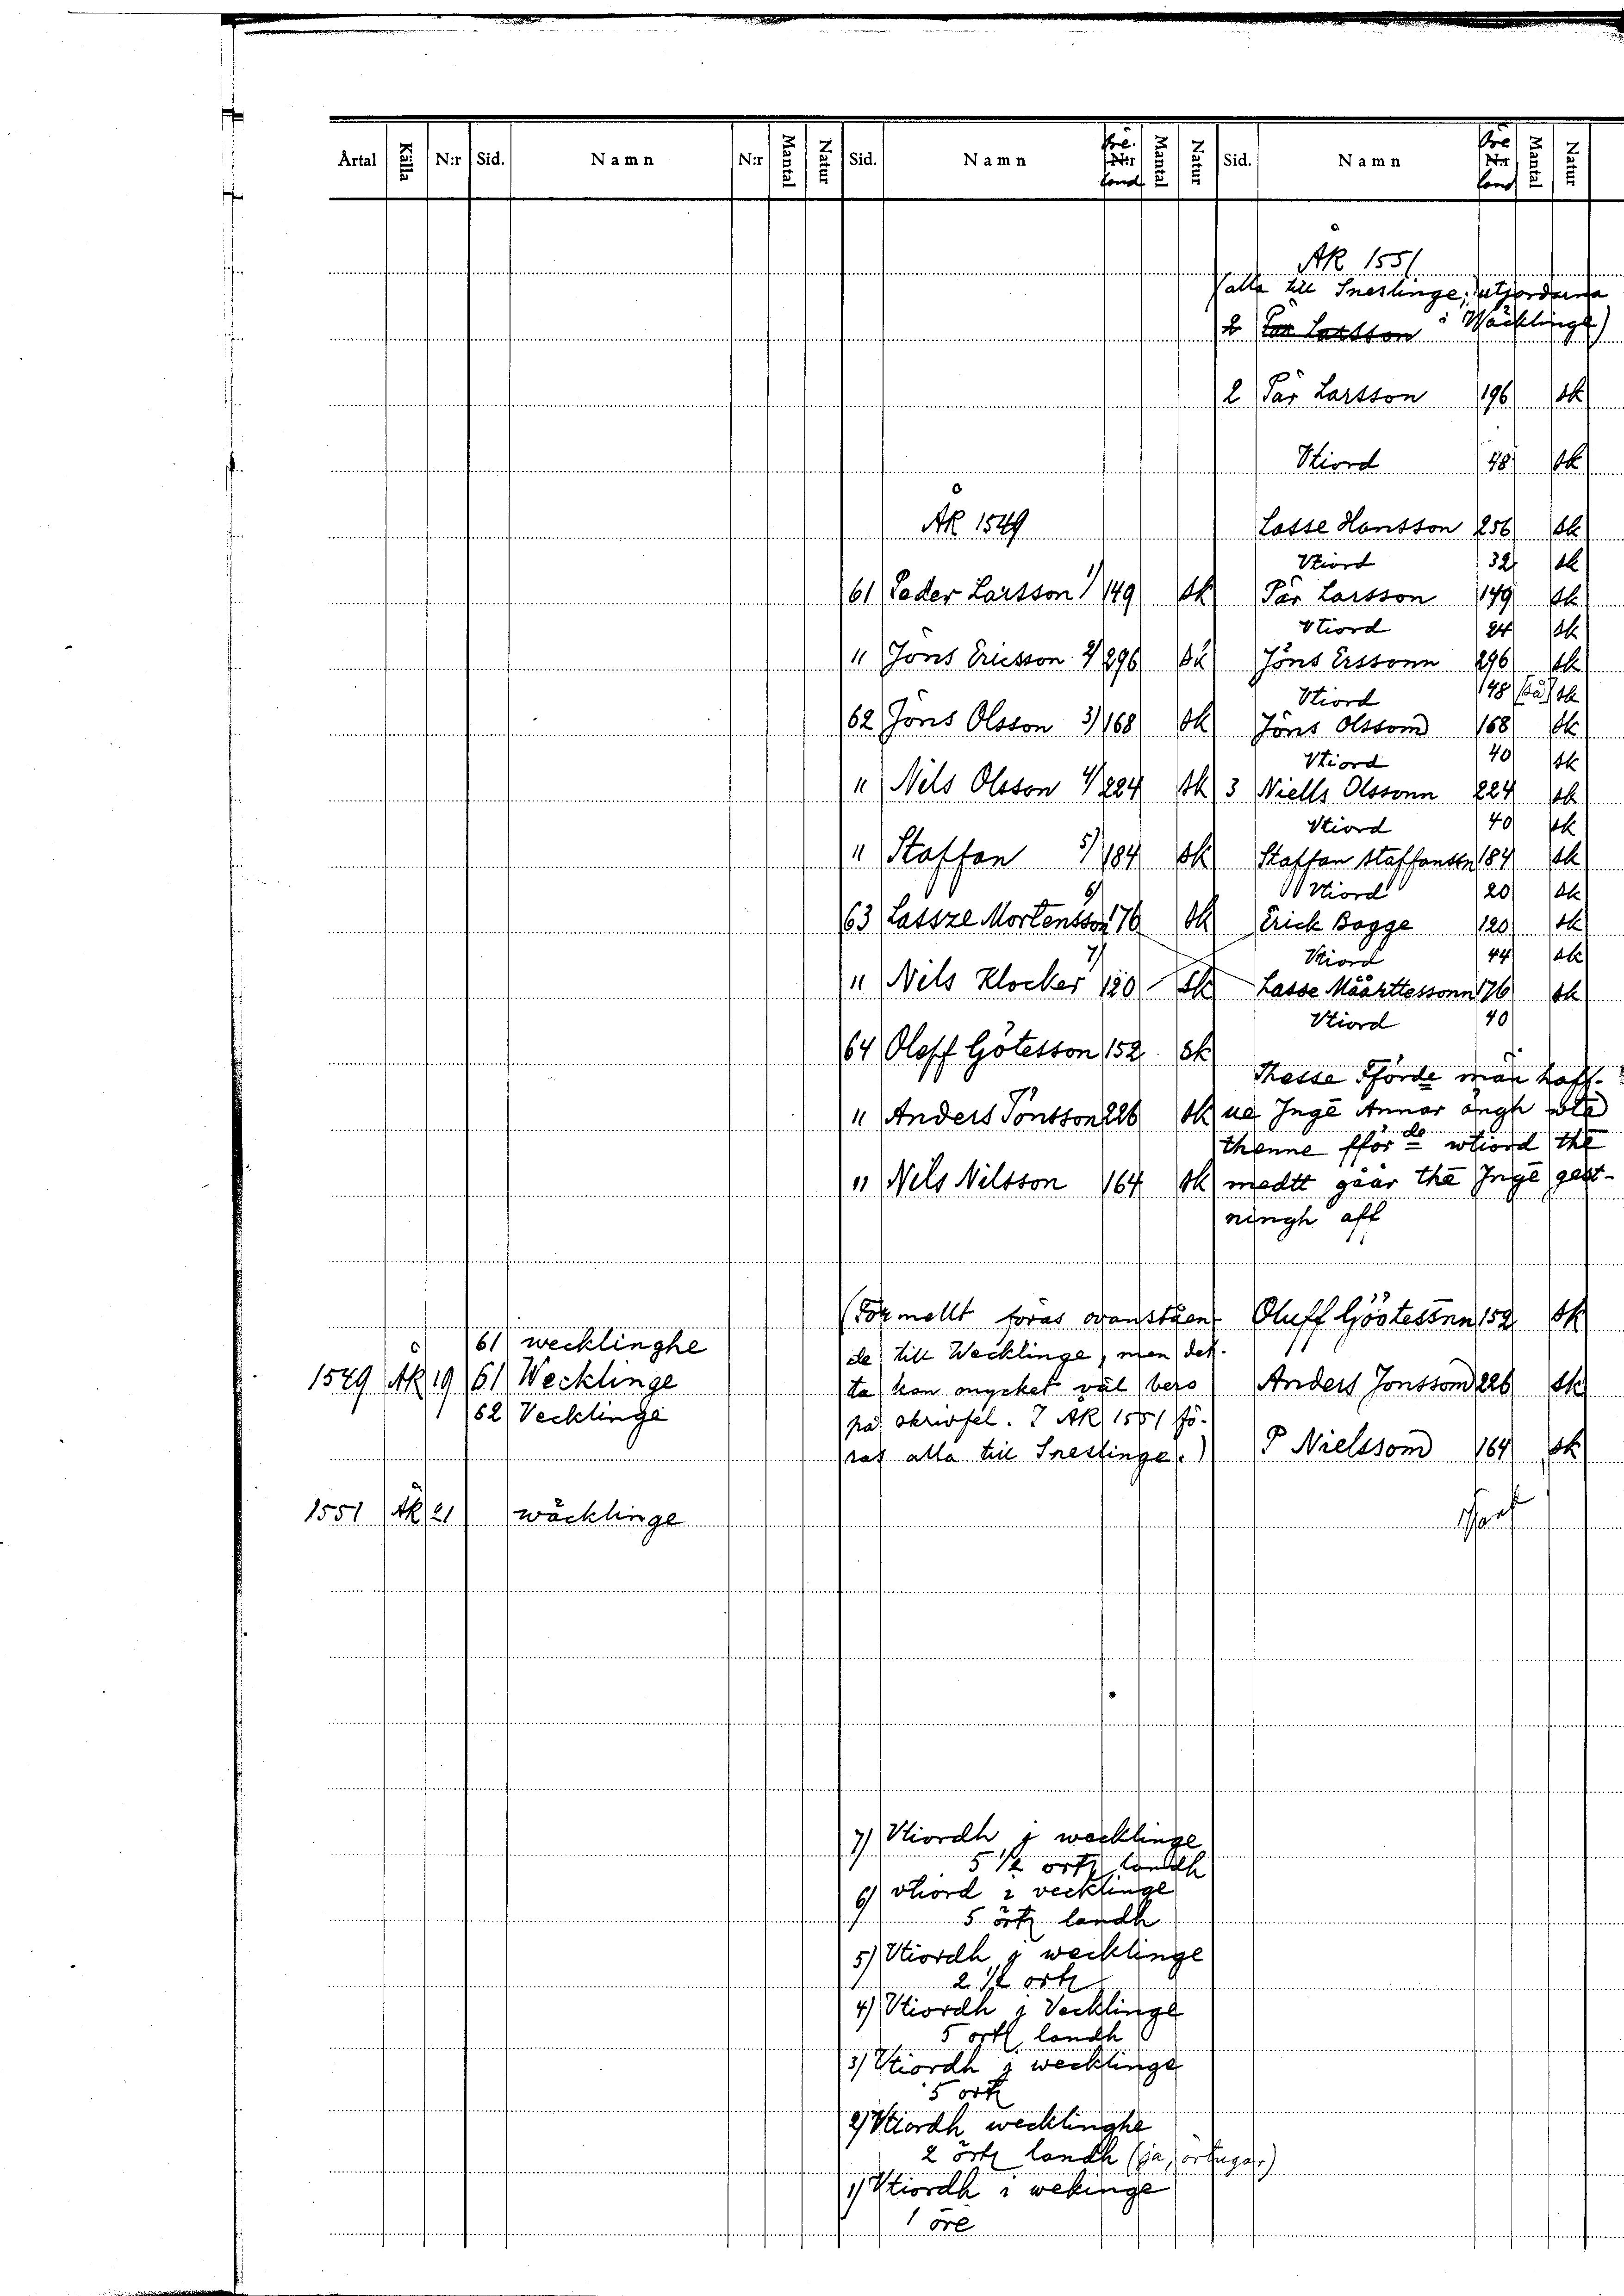 Årtal Källa N:r Sid. Namn N:r Mantal Natur Sid. Namn öre. N:r land Mantal Natur Sid. Namn öre N:r land Mantal Natur
ÅR 1551
(alla till Sneslinge; utjordarna
2 Pär Larsson i Wäcklinge)
2 Pär Larsson 196 sk
Vtiord 48 sk
ÅR 1549 Lasse Hansson 256 sk
Vtiord 32 sk
61 Peder Larsson 1) 149 sk Pär Larsson 149 sk
Vtiord 24 sk
" Jöns Ericsson 2) 296 sk Jöns Erssonn 296 sk
Vtiord 148 [så] sk
62 Jöns Olsson 3) 168 sk Jöns Olssom 168 sk
Vtiord 40 sk
" Nils Olsson 4) 224 sk 3 Niells Olssonn 224 sk
Vtiord 40 sk
" Staffan 5) 184 sk Staffan staffanssn 184 sk
Vtiord 20 sk
63 Lassze Mortensson 6) 176 sk Erick Bagge 120 sk
Vtiord 44 sk
" Nils Klocker 7) 120 sk Lasse Määrttessonn 176 sk
Vtiord 40
64 Oleff Götesson 152 sk
Thesse Fförde män haff-
" Anders Jönsson 226 sk ue Jngē Annar ängh
thenne fför de wtiord thē
" Nils Nilsson 164 sk medtt gåar thē Jngē gest-
ningh aff
(Formellt föras ovanståen- Oluff Göötessnn 152 sk
61 wecklinghe
de till Wecklinge, men det-
1549 ÅR 19 61 Wecklinge ta kan mycket väl bero Anders Jonssom 226 sk
62 Vecklinge på skrivfel. I ÅR 1551 fö-
ras alla till Sneslinge.) P Nielssom 164 sk
1551 ÅR 21 wäcklinge
7) Vtiordh j wecklinge
5 1/2 ortz landh
6) vtiord i vecklinge
5 örtz landh
5) Vtiordh j wecklinge
2 1/2 ortz
4) Vtiordh j Vecklinge
5 ortz landh
3) Vtiordh j wecklinge
5 ortz
2) Vtiordh wecklinghe
2 örtz landh (ja, örtugar)
1) Vtiordh i wekinge
1 öre